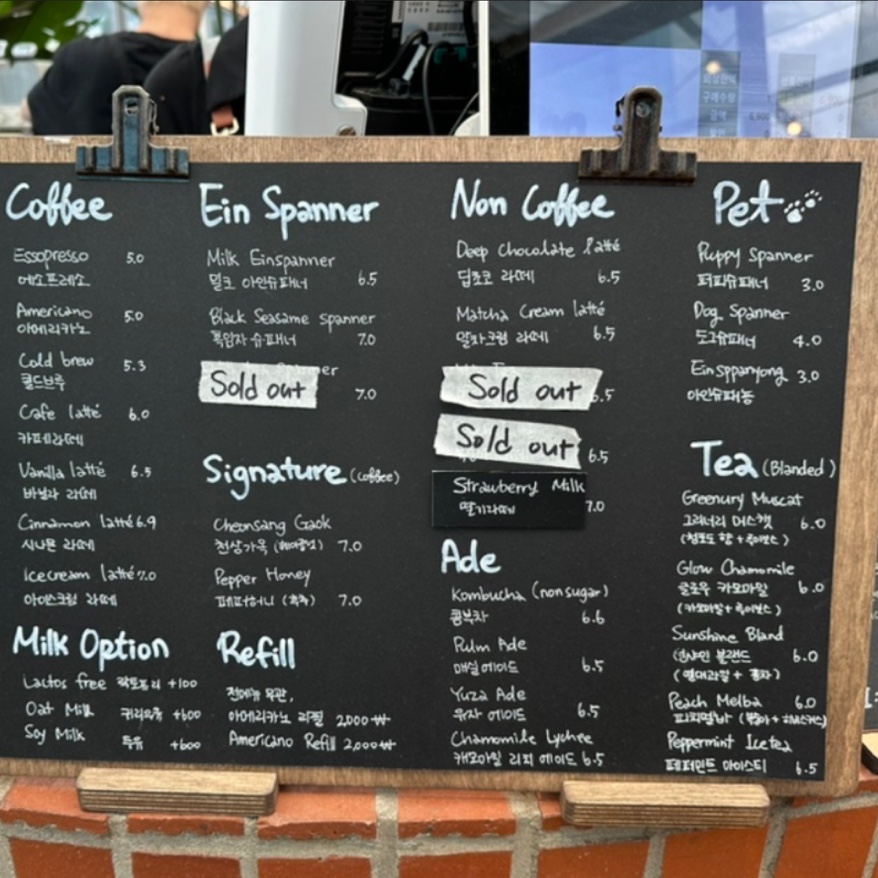 Coffee
Essopresso 5.0
에소프레소
Americano 5.0
아메리카노
Cold brew 5.3
콜드브루
Cafe latté 6.0
카페라떼
Vanilla latté 6.5
바닐라 라떼
Cinnamon latté 6.9
시나몬 라떼
Icecream latté 7.0
아이스크림 라떼
Milk Option
Lactos free 락토프리 +100
Oat Milk 귀리우유 +600
Soy Milk 두유 +600
Ein Spanner
Milk Einspanner
밀크 아인슈패너 6.5
Black Seasame spanner
흑임자 슈패너 7.0
Sold out
7.0
Signature (coffee)
Cheonsang Gaok
천상가옥 7.0
Pepper Honey
페퍼허니 (후추) 7.0
Refill
전메뉴 무관,
아메리카노 리필 2,000₩
Americano Refill 2,000₩
Non Coffee
Deep Chocolate latté
딥초코 라떼 6.5
Matcha Cream latté
말차크림 라떼 6.5
Sold out 6.5
Sold out 6.5
Strawberry Milk
딸기라떼 7.0
Ade
Kombucha (non sugar)
콤부차 6.6
Pulm Ade
매실에이드 6.5
Yuza Ade
유자 에이드 6.5
Chamomile Lychee
캐모마일 리치 에이드 6.5
Pet
Puppy Spanner
퍼피슈패너 3.0
Dog Spanner
도그슈패너 4.0
Einsppanyong 3.0
아인슈패뇽
Tea (Blanded)
Greenury Muscat
그리너리 머스캣 6.0
(청포도 향 + 루이보스)
Glow Chamomile
글로우 카모마일 6.0
(카모마일 + 루이보스)
Sunshine Bland
썬샤인 블랜드 6.0
(열대과일 + 홍차)
Peach Melba 6.0
피치멜바 (복숭아 + 히비스커스)
Peppermint Icetea
페퍼민트 아이스티 6.5